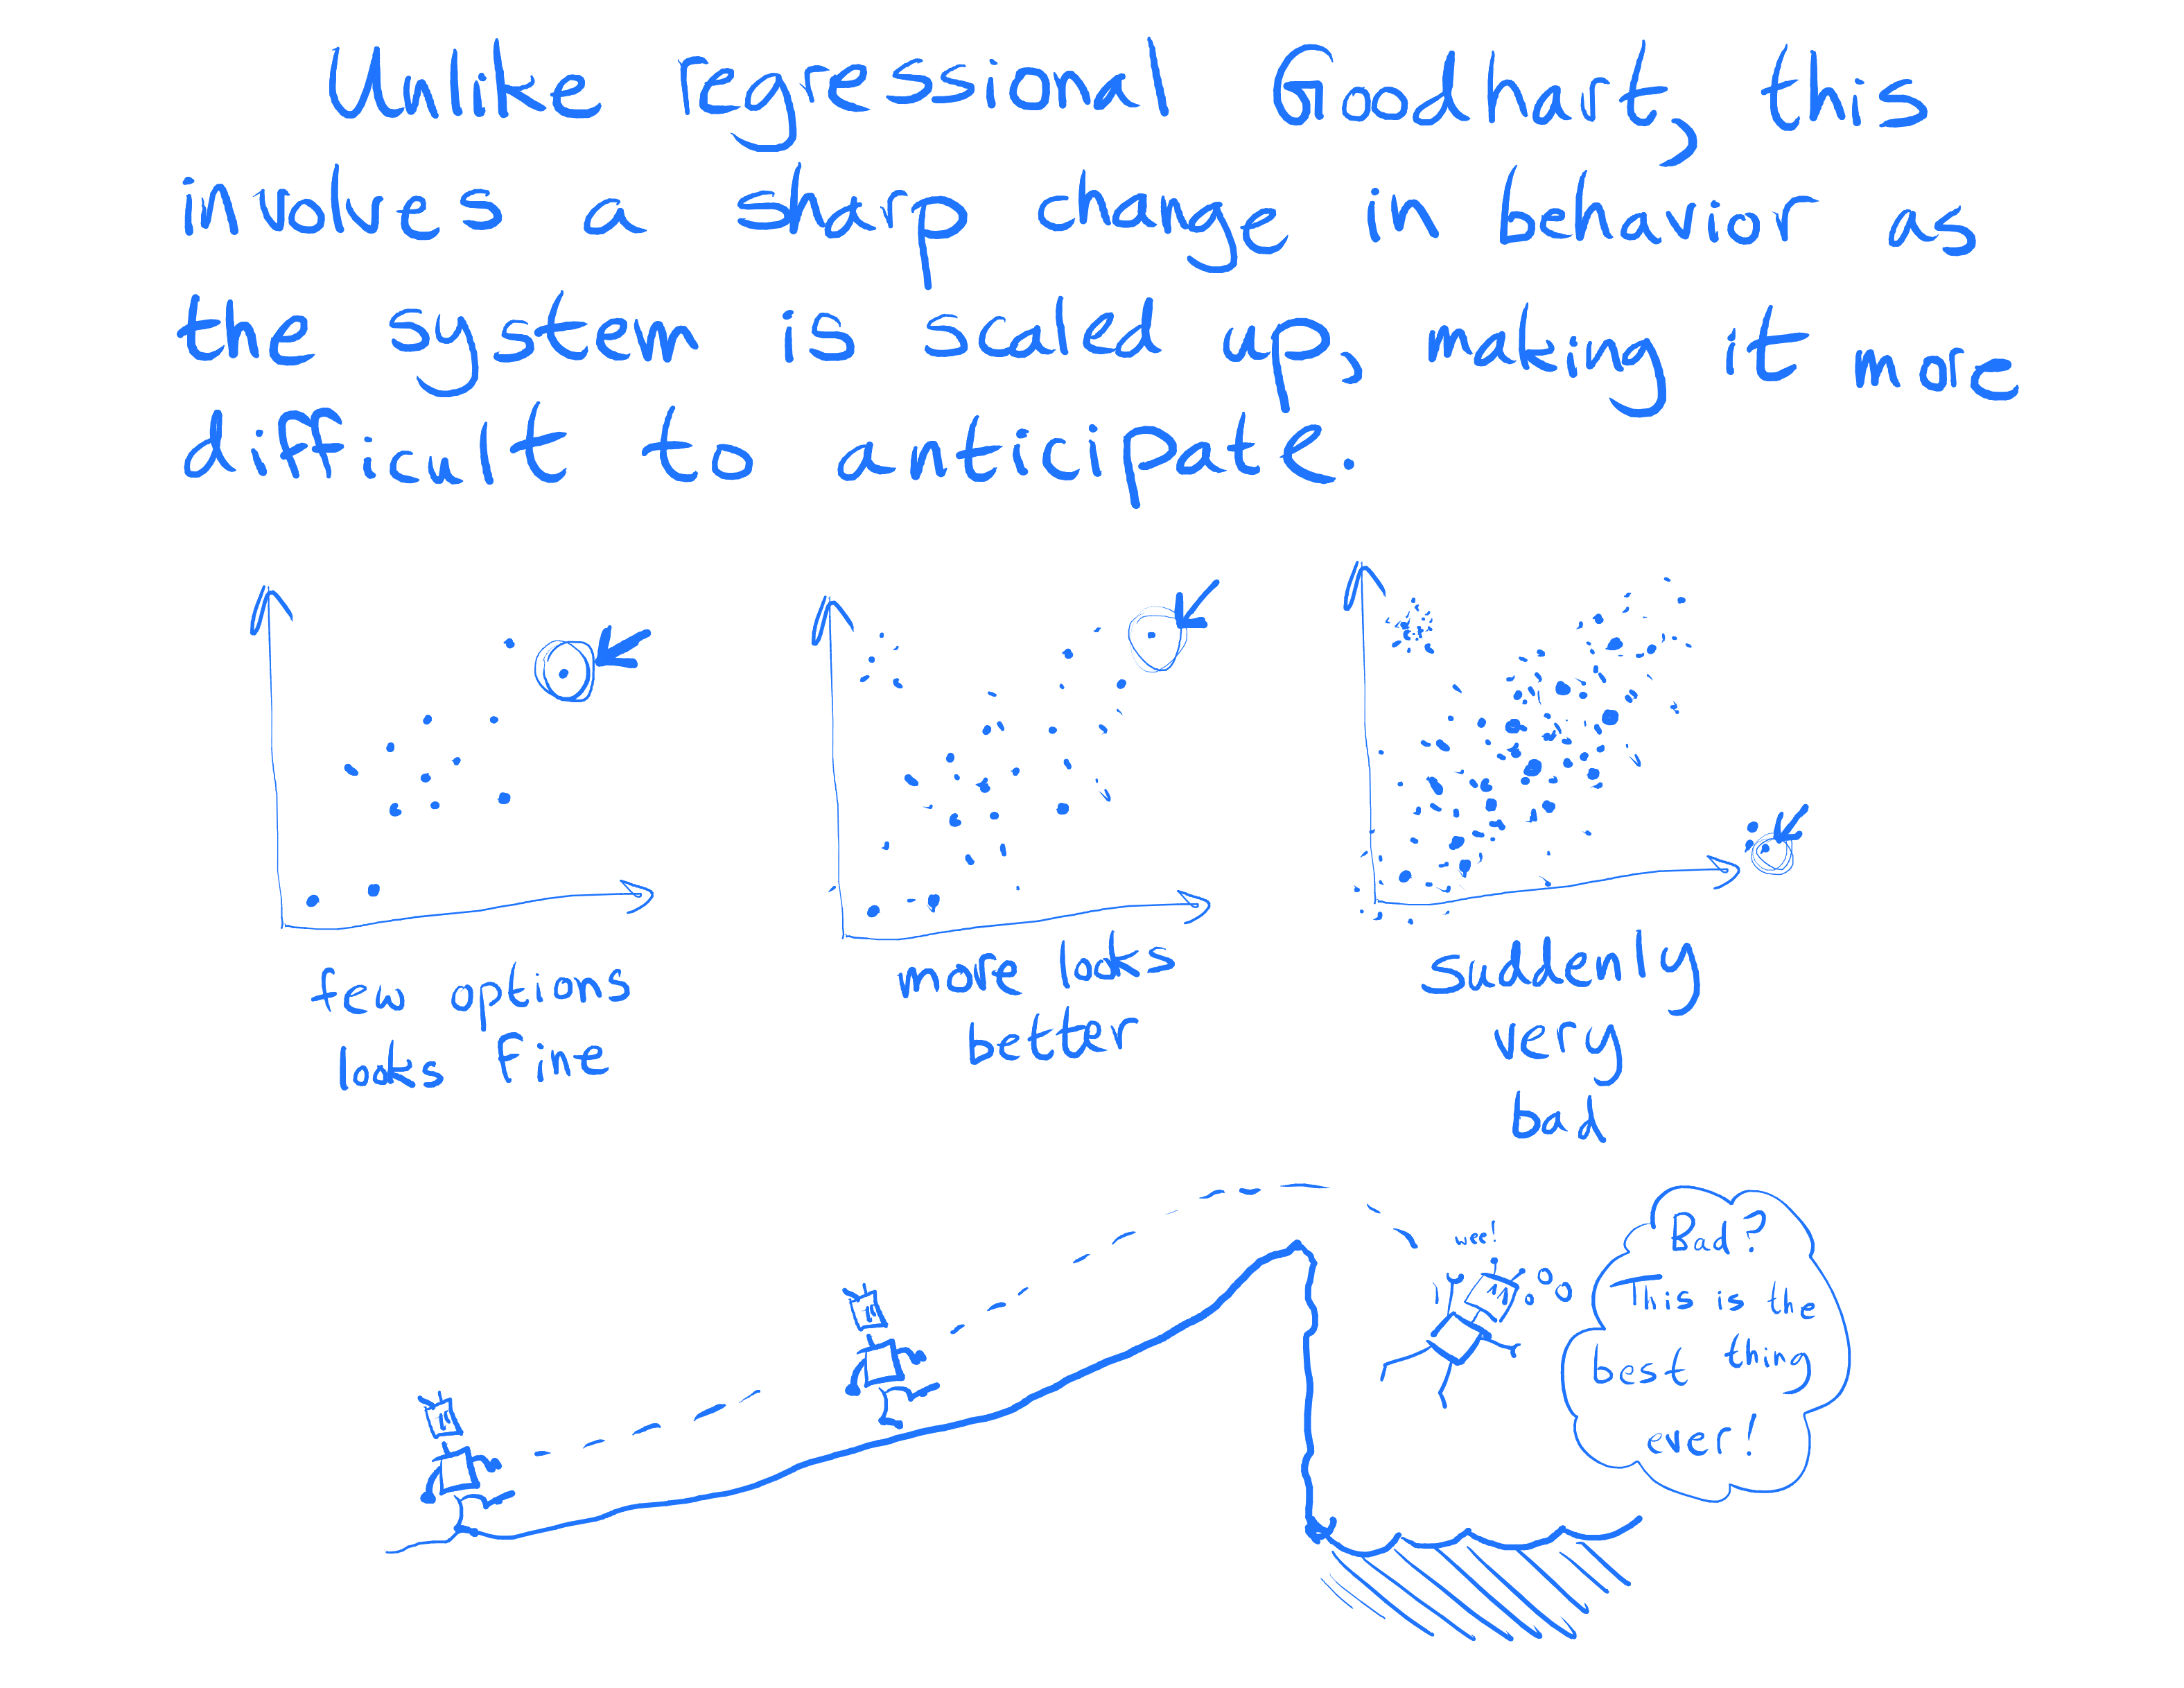 Unlike regressional Goodhart, this
involves a sharp change in behavior as
the system is scaled up, making it more
difficult to anticipate.
few options
looks fine
more looks
better
suddenly
very
bad
wee!
Bad?
This is the
best thing
ever!